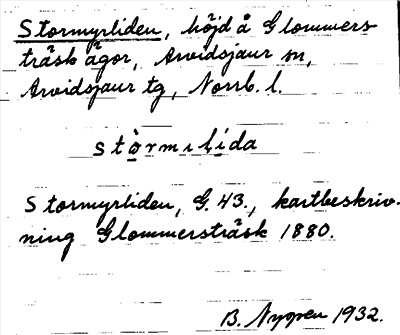 Stormyrliden, höjd å Glommers-
träsk ägor, Arvidsjaur sn,
Arvidsjaur tg, Norrb. l.
stòrmılída
Stormyrliden, G. 43., kartbeskriv-
ning Glommersträsk 1880.
B. Nygren 1932.